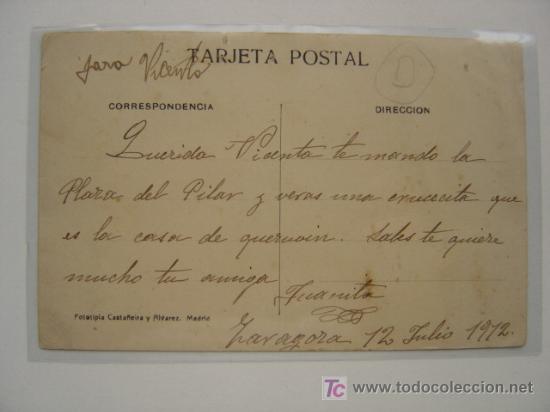 para Vicenta
TARJETA POSTAL
D
CORRESPONDENCIA
DIRECCION
Querida Vicenta te mando la
Plaza del Pilar y veras una crucecita que
es la casa de . Sabes te quiere
mucho tu amiga
Juanita
Fototipia Castañeira y Alvarez. Madrid
Zaragoza 12 Julio 1912.
TC www.todocoleccion.net